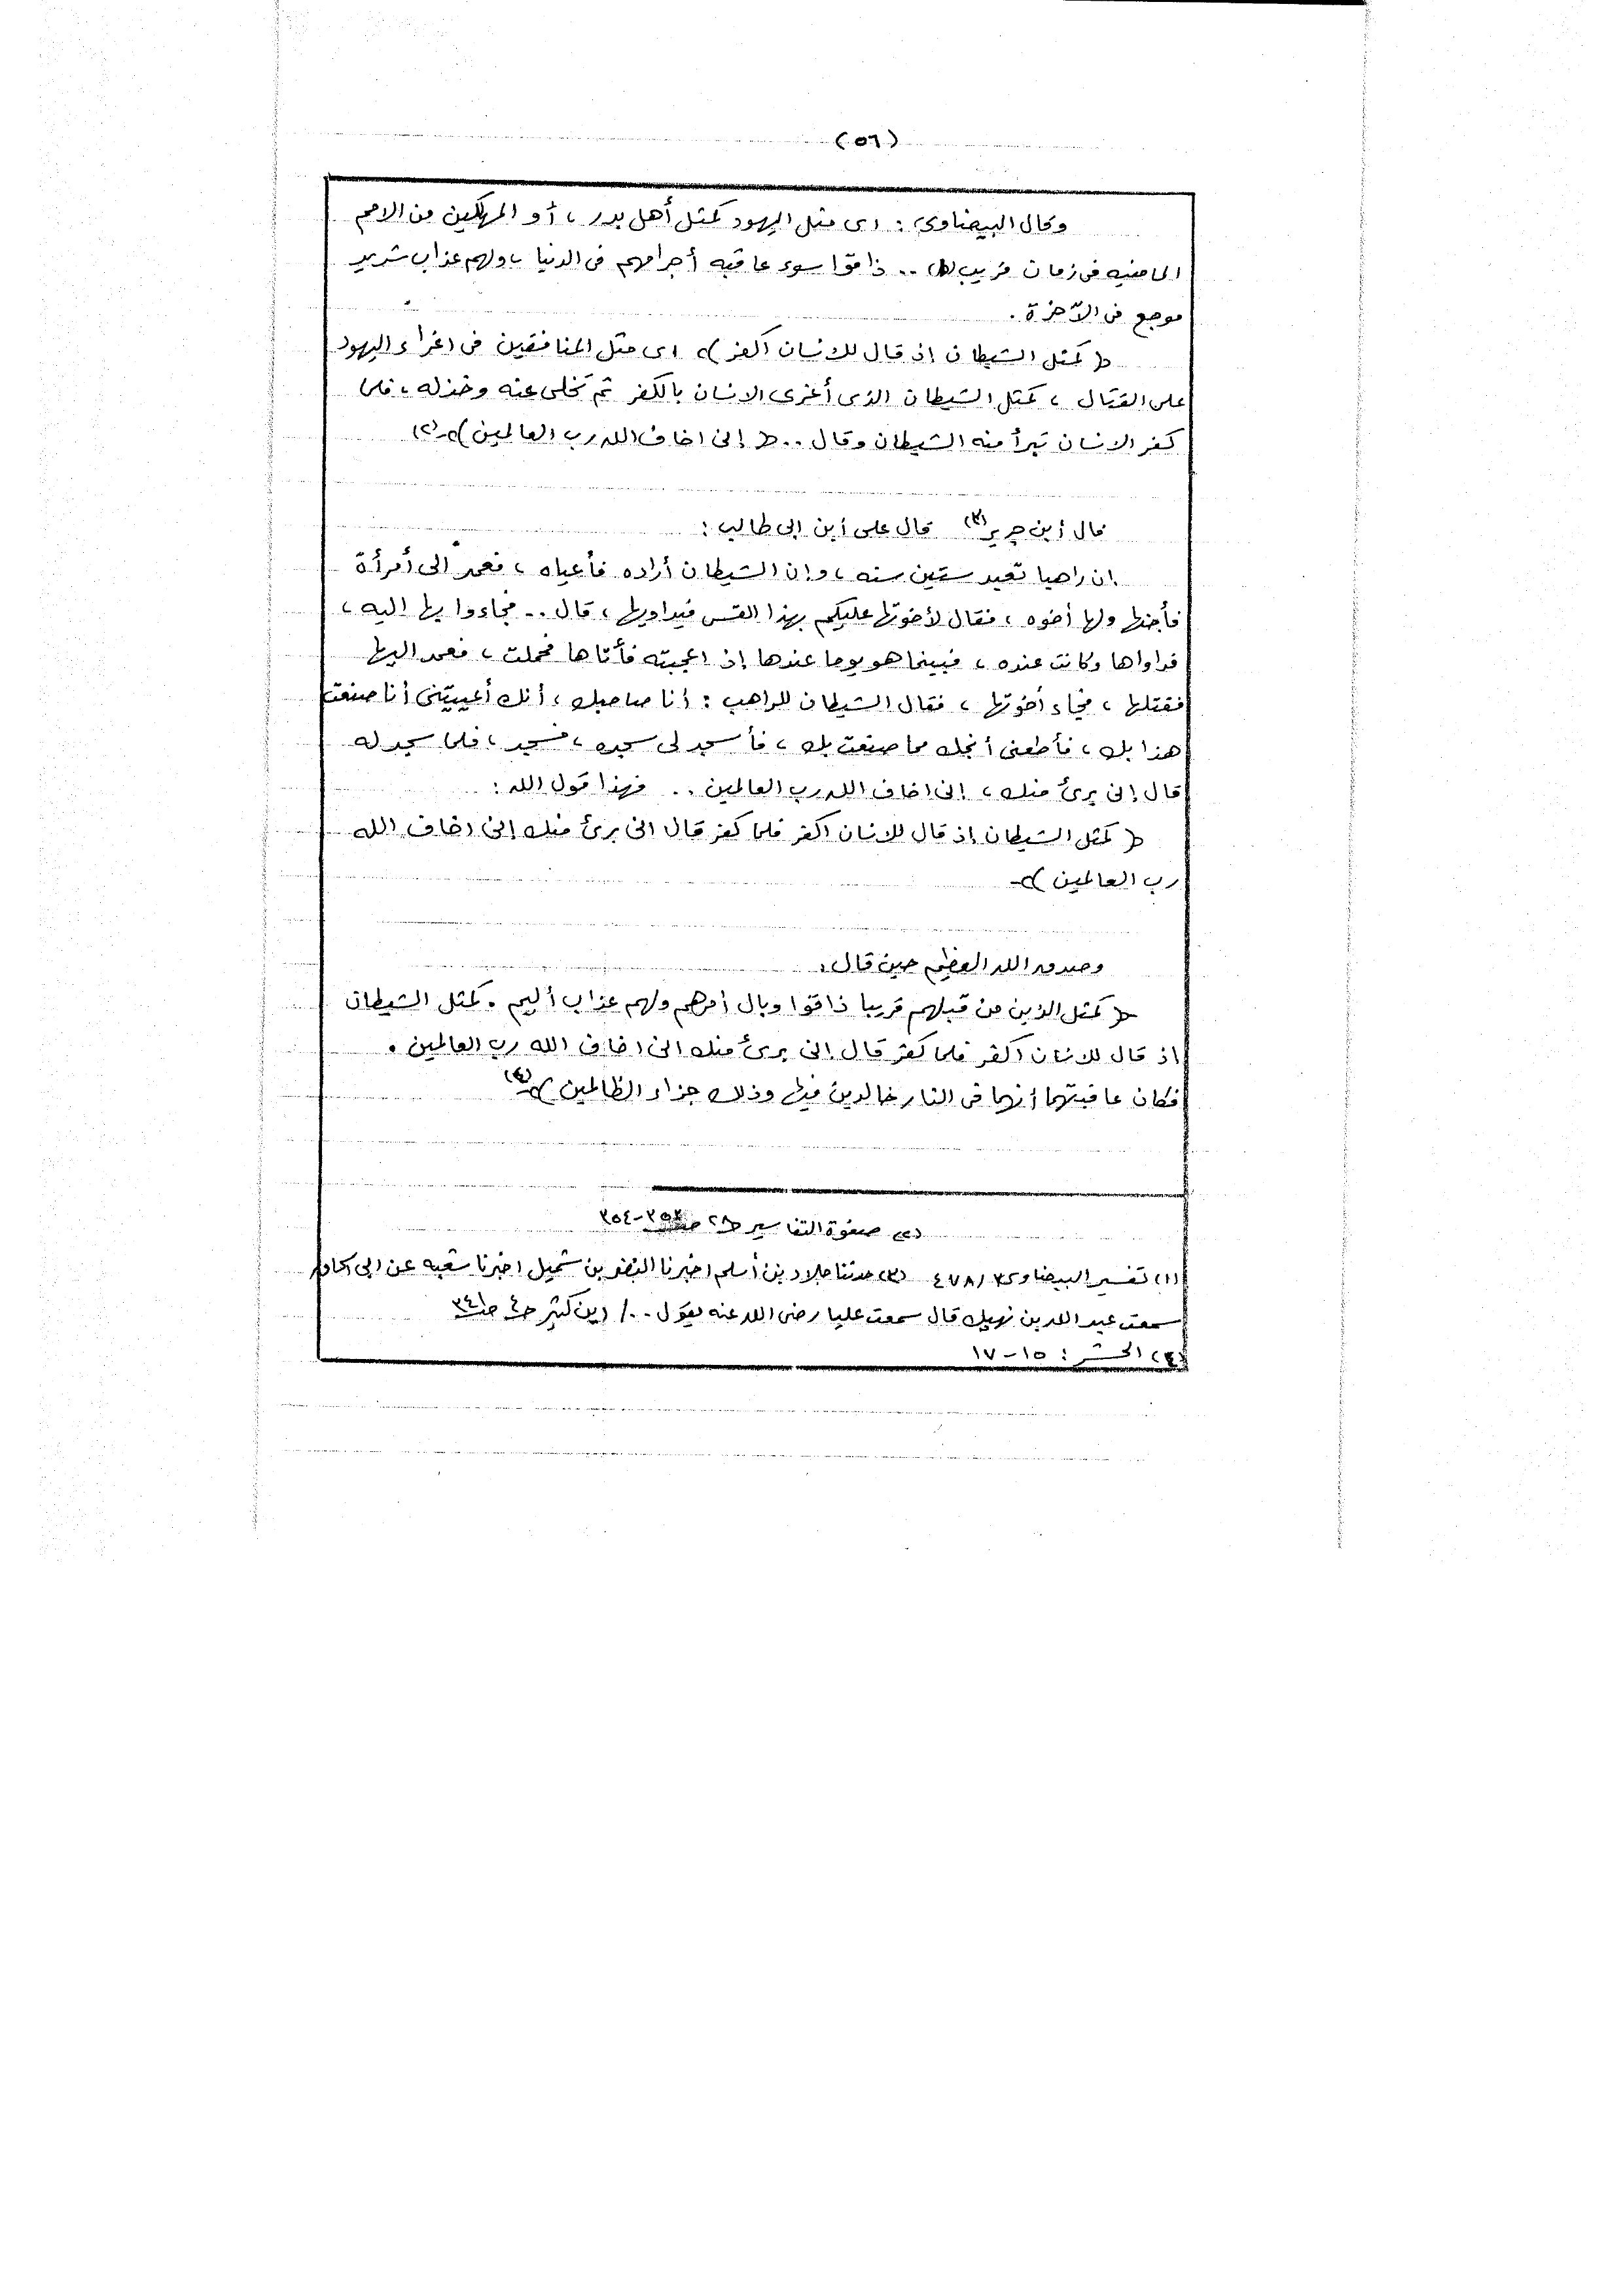 (٥٦)
وقال البيضاوى : اى مثل اليهود كمثل أهل بدر ، أو المهلكين من الامم
الماضيه فى زمان قريب (١) .. ذاقوا سوء عاقبه أجرامهم فى الدنيا ، ولهم عذاب شديد
موجع فى الآخرة .
﴿ كمثل الشيطان اذ قال للانسان اكفر ﴾ اى مثل المنافقين فى اغراء اليهود
على القتال ، كمثل الشيطان الذى أغرى الانسان بالكفر ثم تخلى عنه وخذله ، فلما
كفر الانسان تبرأ منه الشيطان وقال .. ﴿ إنى اخاف الله رب العالمين ﴾ (٢)
قال أبن جرير (٣) قال على أبن ابى طالب :
ان راهبا تعبد ستين سنه ، وان الشيطان أراده فأعياه ، فعمد الى أمرأة
فأجنها ولها أخوه ، فقال لأخوتها عليكم بهذا القس فيداويها ، قال .. فجاءوا بها اليه ،
فداواها وكانت عنده ، فبينما هو يوما عندها إذ اعجبته فأتاها فحملت ، فعمد اليها
فقتلها ، فجاء أخوتها ، فقال الشيطان للراهب : أنا صاحبك ، أنك أعييتنى أنا صنعت
هذا بك ، فأطعنى أنجك مما صنعت بك ، فأسجد لى سجده ، فسجد ، فلما سجد له
قال إنى برئ منك ، إنى اخاف الله رب العالمين .. فهذا قول الله :
﴿ كمثل الشيطان إذ قال للانسان اكفر فلما كفر قال انى برئ منك إنى اخاف الله
رب العالمين ﴾
وصدق الله العظيم حين قال :
﴿ كمثل الذين من قبلهم قريبا ذاقوا وبال أمرهم ولهم عذاب أليم . كمثل الشيطان
اذ قال للانسان اكفر فلما كفر قال إنى برئ منك انى اخاف الله رب العالمين .
فكان عاقبتهما أنهما فى النار خالدين فيها وذلك جزاء الظالمين ﴾ (٤)
(٢) صفوة التفاسير ح٢٨ ص ٣٥٣-٣٥٤
(١) تفسير البيضاوى ٤٧٨/٣ (٣) حدثنا خلاد بن أسلم اخبرنا النضر بن شميل اخبرنا شعبه عن ابى اسحاق
سمعت عبد الله بن نهيك قال سمعت عليا رضى الله عنه يقول .. / ابن كثير ح٤ ص ٣٤١
(٤) الحشر : ١٥-١٧